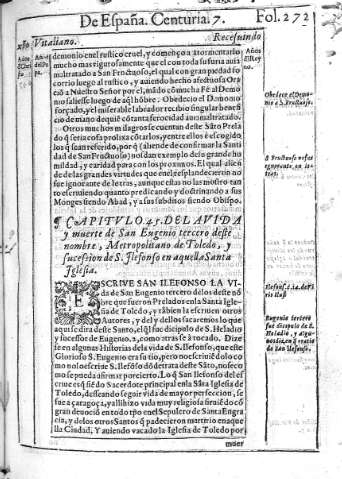 De España. Centuria. 7. Fol. 272
Vitaliano. Recesuindo
demonio en el rustico cruel, y començo a atormentarlo
mucho mas rigurosamente que el con toda su furia auia
maltratado a San Fructuoso, el qual con gran piedad socorrio
luego al rustico, y auiendo hecho afectuosa Oracio
à Nuestro Señor por el, mãdò con mucha Fè al Demonio
saliesse luego de aq̃l hõbre: Obedecio el Demonio
forçado, y el miserable labrador recibio singular beneficio
de mano de quiẽ cõ tanta ferocidad auia maltratado.
Otros muchos milagros se cuentan deste Sãto Prelado
q̃ seria cosa prolixa cõtarlos, y entre ellos he escogido
los q̃ sean referido, por q̃ (aliende de confirmar la Santidad
de San Fructuoso) nos dan exemplo de su grande humildad,
y caridad para con los proximos. El qual aliẽde
de las grandes virtudes que en el resplandecieron no
fue ignorante de letras, aunque estas no las mostro tanto
escriuiendo quanto predicando y doctrinando a sus
Monges siendo Abad, y a sus subditos siendo Obispo.
¶ CAPITVLO. 45. DE LA VIDA
y muerte de San Eugenio tercero deste
nombre, Metropolitano de Toledo, y
sucession de S. Ilefonso en aquella Santa
Iglesia.
ESCRIVE SAN ILEFONSO LA VIda
de San Eugenio tercero deste nõbre
que fueron Prelados en la Santa Iglesia
de Toledo, y tãbien la escriuen otros
Autores, y del y dellos sacaremos lo que
aqui se dira deste Santo, el q̃l fue dicipulo de S. Heladio
y sucessor de Eugenio. 2. como atras se à tocado. Dizese
en algunas Historias de la vida de S. Ilefonso, que este
Glorioso S. Eugenio era su tio, pero no se escriue de lo como
no lo escriue S. Ilefõso dõ de trata deste Sãto, no se como
se pueda afirmar por cierto. Lo q̃ San Ilefonso del escriue
es q̃ siẽdo Sacerdote principal en la Sãta Iglesia de
Toledo, desseando seguir vida de mayor perfeccion, se
fue a çaragoça, y alli hizo vida muy religiosa siruiẽdo cõ
gran deuociõ en todo tpõ en el Sepulcro de Santa Engracia,
y de los otros Santos q̃ padecieron martirio en aquella
Ciudad, Y auiendo vacado la Iglesia de Toledo por
muer
Obedece el Demonio
a S. Fructuoso.
S Fructuoso no fue
ignorante en las
letras.
Eugenio tercero
fue dicipulo de S.
Heladio